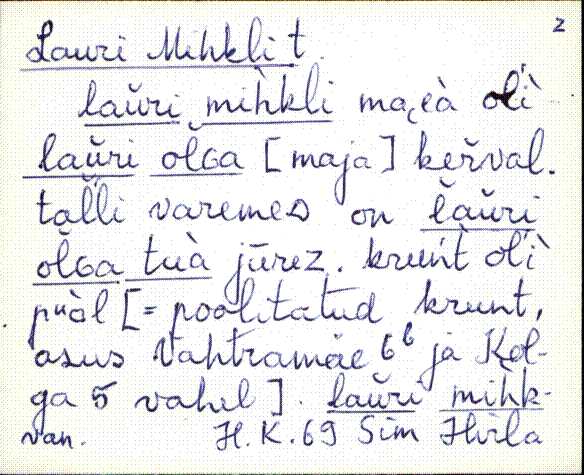 2
Lauri Mihkli t.
laŭri mìhkli maeà olì
laŭri olGa [maja] keŕval.
talli varemed on laŭri
olGa tuà jūrez. kruńt olì
puàl [= poolitatud krunt,
asus Vahtramäe 6⁶ ja Kol-
ga 5 vahel]. laŭri mìhk-
van. H.K. 69 Sim Hirla